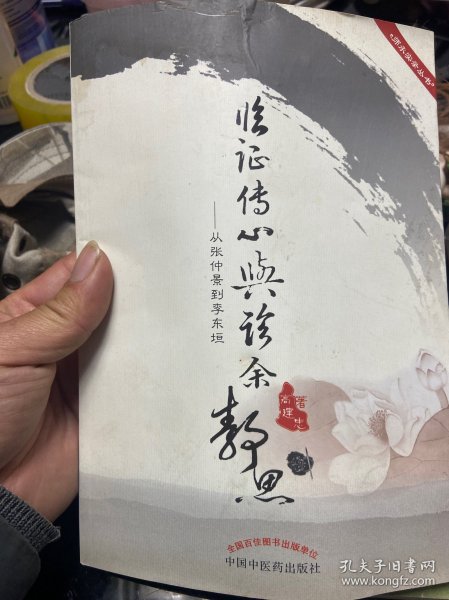 "师承实录丛书"
临证传心与诊余静思
——从张仲景到李东垣
高建忠 著
全国百佳图书出版单位
中国中医药出版社
孔夫子旧书网
www.kongfz.com